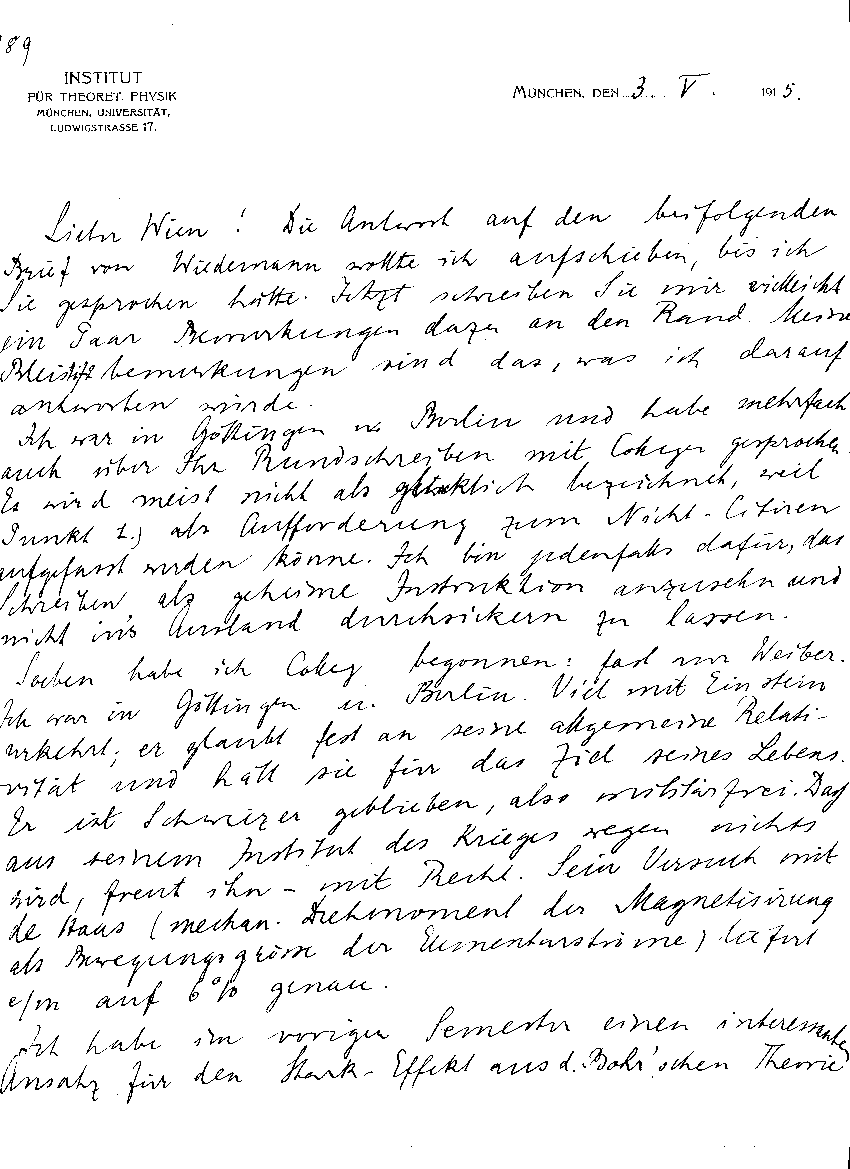 189
INSTITUT
FÜR THEORET. PHYSIK
MÜNCHEN, UNIVERSITÄT,
LUDWIGSTRASSE 17.
MÜNCHEN, DEN 3. V. 1915.
Lieber Wien! Die Antwort auf den beifolgenden
Brief von Wiedemann wollte ich aufschieben, bis ich
Sie gesprochen hätte. Jetzt schreiben Sie mir vielleicht
ein Paar Bemerkungen dazu an den Rand. Meine
Bleistiftbemerkungen sind das, was ich darauf
antworten würde.
Ich war in Göttingen u. Berlin und habe mehrfach
auch über Ihr Rundschreiben mit Collegen gesprochen.
Es wird meist nicht als glücklich bezeichnet, weil
Punkt 1.) als Aufforderung zum Nicht-Citiren
aufgefasst werden könne. Ich bin jedenfalls dafür, das
Schreiben als geheime Instruktion anzusehn und
nicht in's Ausland durchsickern zu lassen.
Soeben habe ich Colleg begonnen: fast nur Weiber.
Ich war in Göttingen u. Berlin. Viel mit Einstein
verkehrt; er glaubt fest an seine allgemeine Relati-
vität und hält sie für das Ziel seines Lebens.
Er ist Schweizer geblieben, also militärfrei. Dass
aus seinem Institut des Krieges wegen nichts
wird, freut ihn – mit Recht. Sein Versuch mit
de Haas (mechan. Drehmoment der Magnetisirung
als Bewegungsgrösse der Elementarströme) liefert
e/m auf 6% genau.
Ich habe im vorigen Semester einen interessanten
Ansatz für den Stark-Effekt aus d. Bohr'schen Theorie